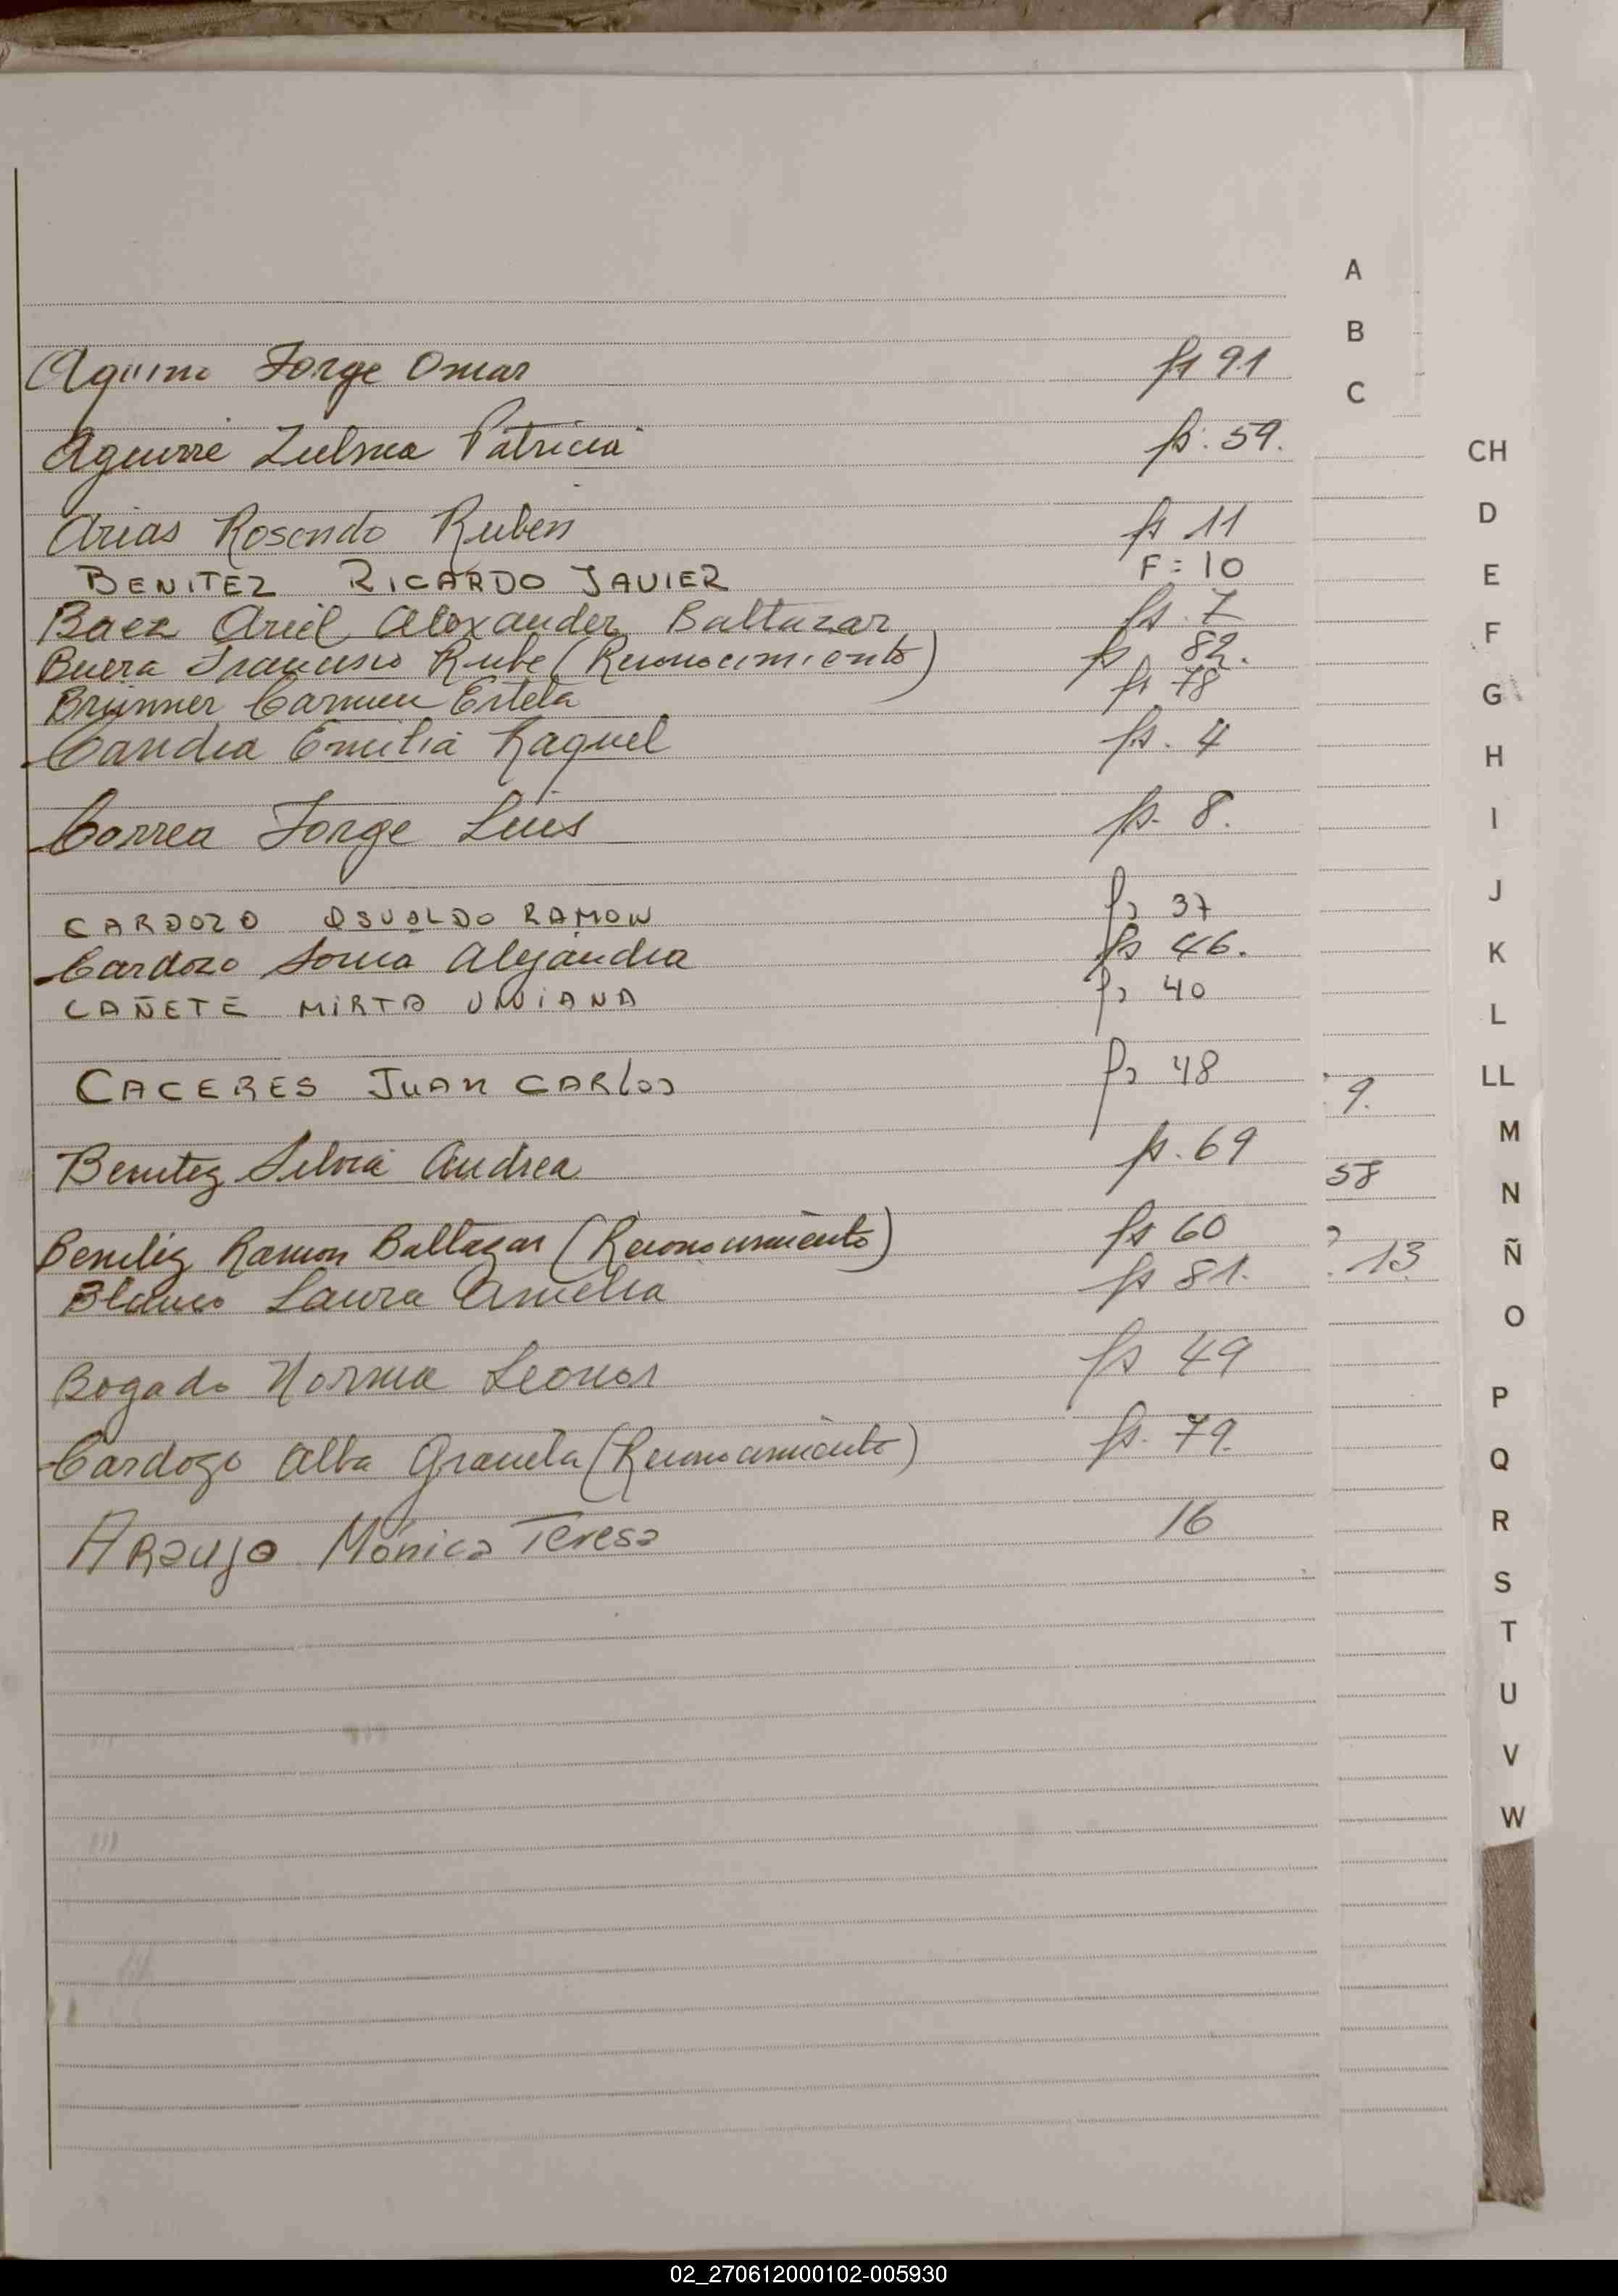 A
B
Aquino Jorge Omar fs 91
C
Aguirre Zulma Patricia fs. 59.
CH
D
Arias Rosendo Ruben fs 11
BENITEZ RICARDO JAVIER F=10
E
Baez Ariel Alexander Baltazar fs. 7
F
Francisco Rube (Reconocimiento) fs 82.
Brünner Carmen Estela fs 78
G
Candia Emilia Raquel fs. 4
H
Correa Jorge Luis fs. 8.
I
J
CARDOZO OSVALDO RAMON fs 37
Cardozo Sonia Alejandra fs 46.
K
CAÑETE MIRTA VIVIANA fs 40
L
CACERES JUAN CARLOS fs 48
LL
9.
M
Benitez Silvia Andrea fs. 69
58
N
Benitez Ramon Baltazar (Reconocimiento) fs 60
Ñ
Blanco Laura Amelia fs 81.
13
O
Bogado Norma Leonor fs 49
P
Cardozo Alba Graciela (Reconocimiento) fs. 79.
Q
R
ARAUJO Mónica Teresa 16
S
T
U
V
W
02_270612000102-005930